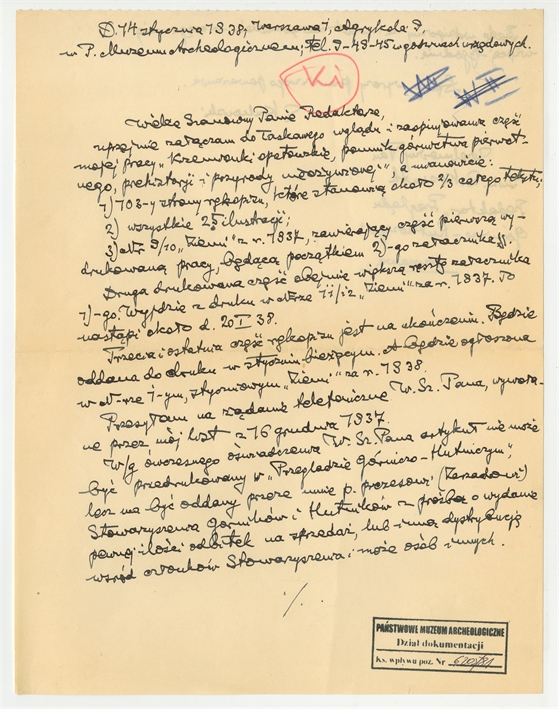 D. 14 stycznia 1938, Warszawa 1, Agrykola 9,
w P. Muzeum Archeologicznem; tel. 9-43-45 w godzinach urzędowych.
Ki
Wielce Szanowny Panie Redaktorze,
uprzejmie załączam do łaskawego wglądu i zaopinjowania część
mojej pracy „Krzemionki opatowskie, pomnik górnictwa pierwot-
nego, prehistorji i przyrody nieożywionej", a mianowicie:
1) 103-y strony rękopisu, które stanowią około 2/3 całego tekstu;
2) wszystkie 25 ilustracji;
3) Nr 9/10 „Ziemi" z r. 1937, zawierający część pierwszą wy-
drukowaną pracy, będącą początkiem 2)-go załącznika.
Druga drukowana część obejmie większą resztę załącznika
1)-go. Wyjdzie z druku w Nrze 11/12 „Ziemi" za r. 1937. To
nastąpi około d. 20 I 38.
Trzecia i ostatnia część rękopisu jest na ukończeniu. Będzie
oddana do druku w styczniu bieżącym. A będzie ogłoszona
w Nrze 1-ym, styczniowym „Ziemi" za r. 1938.
Przesyłam na żądanie telefoniczne W. Sz. Pana, wywoła-
ne przez mój list z 16 grudnia 1937.
W/g ówczesnego oświadczenia W. Sz. Pana artykuł nie może
być przedrukowany w „Przeglądzie Górniczo-Hutniczym",
lecz ma być oddany przeze mnie p. prezesowi (Zarządowi)
Stowarzyszenia Górników i Hutników z prośbą o wydanie
pewnej ilości odbitek na sprzedaż, lub inną dystrybucję
wśród członków Stowarzyszenia i może osób innych.
./.
PAŃSTWOWE MUZEUM ARCHEOLOGICZNE
Dział dokumentacji
Ks. wpływu poz. Nr